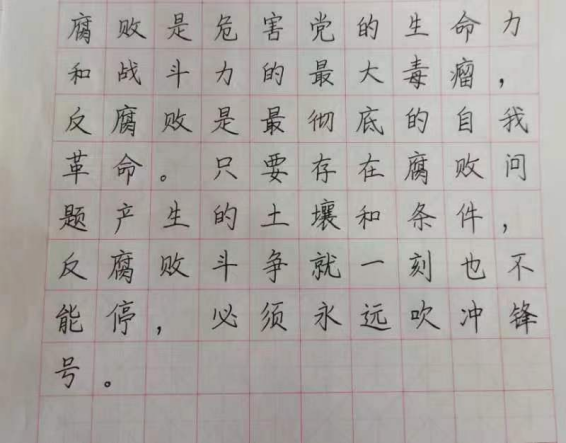 腐败是危害党的生命力
和战斗力的最大毒瘤，
反腐败是最彻底的自我
革命。只要存在腐败问
题产生的土壤和条件，
反腐败斗争就一刻也不
能停，必须永远吹冲锋
号。